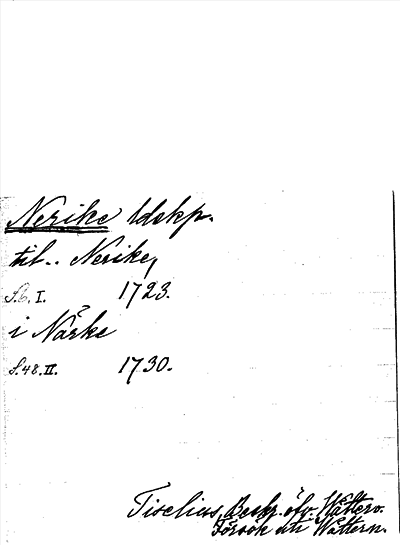 Nerike ldskp.
til.. Nerike,
S.6.I. 1723.
i Närke
S.48.II. 1730.
Tiselius, Beskr. öfv. Wätter.
Försök uti Wättern.